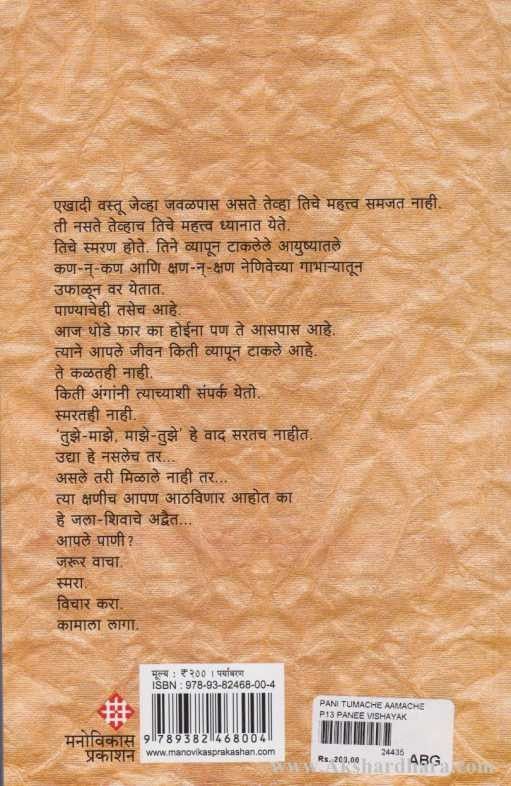 एखादी वस्तू जेव्हा जवळपास असते तेव्हा तिचे महत्त्व समजत नाही.
ती नसते तेव्हाच तिचे महत्त्व ध्यानात येते.
तिचे स्मरण होते. तिने व्यापून टाकलेले आयुष्यातले
कण-न्-कण आणि क्षण-न्-क्षण नेणिवेच्या गाभाऱ्यातून
उफाळून वर येतात.
पाण्याचेही तसेच आहे.
आज थोडे फार का होईना पण ते आसपास आहे.
त्याने आपले जीवन किती व्यापून टाकले आहे.
ते कळतही नाही.
किती अंगांनी त्याच्याशी संपर्क येतो.
स्मरतही नाही.
'तुझे-माझे, माझे-तुझे' हे वाद सरतच नाहीत.
उद्या हे नसलेच तर...
असले तरी मिळाले नाही तर...
त्या क्षणीच आपण आठविणार आहोत का
हे जला-शिवाचे अद्वैत...
आपले पाणी?
जरूर वाचा.
स्मरा.
विचार करा.
कामाला लागा.
मूल्य : ₹ २०० । पर्यावरण
ISBN : 978-93-82468-00-4
9 789382 468004
www.manovikasprakashan.com
मनोविकास
प्रकाशन
PANI TUMACHE AAMACHE
P13 PANEE VISHAYAK
24435
Rs. 200.00
ABG
www.Akshardhara.com